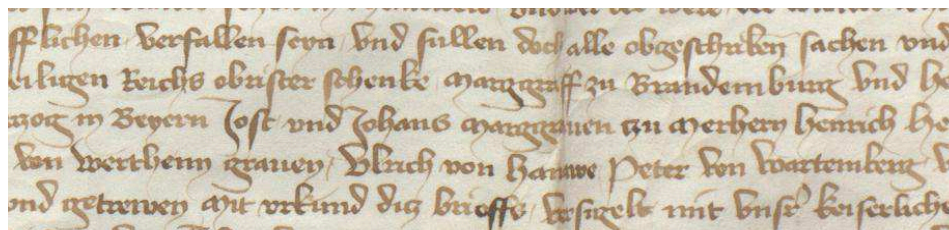 fflichen verfallen seyn vnd sullen doch alle obgeschriben sachen vnd
eiligen Reichs obrister schenke Marggraff zu Brandemburg vnd H
rzog in Beyern Jost vnd Johans Marggrauen zu Merhern Henrich He
von Wertheim grauen Vlrich von Hanawe Peter von Wartemberg
vnd getrewen Mit vrkund diz brieffs versigelt mit vnser keiserliche